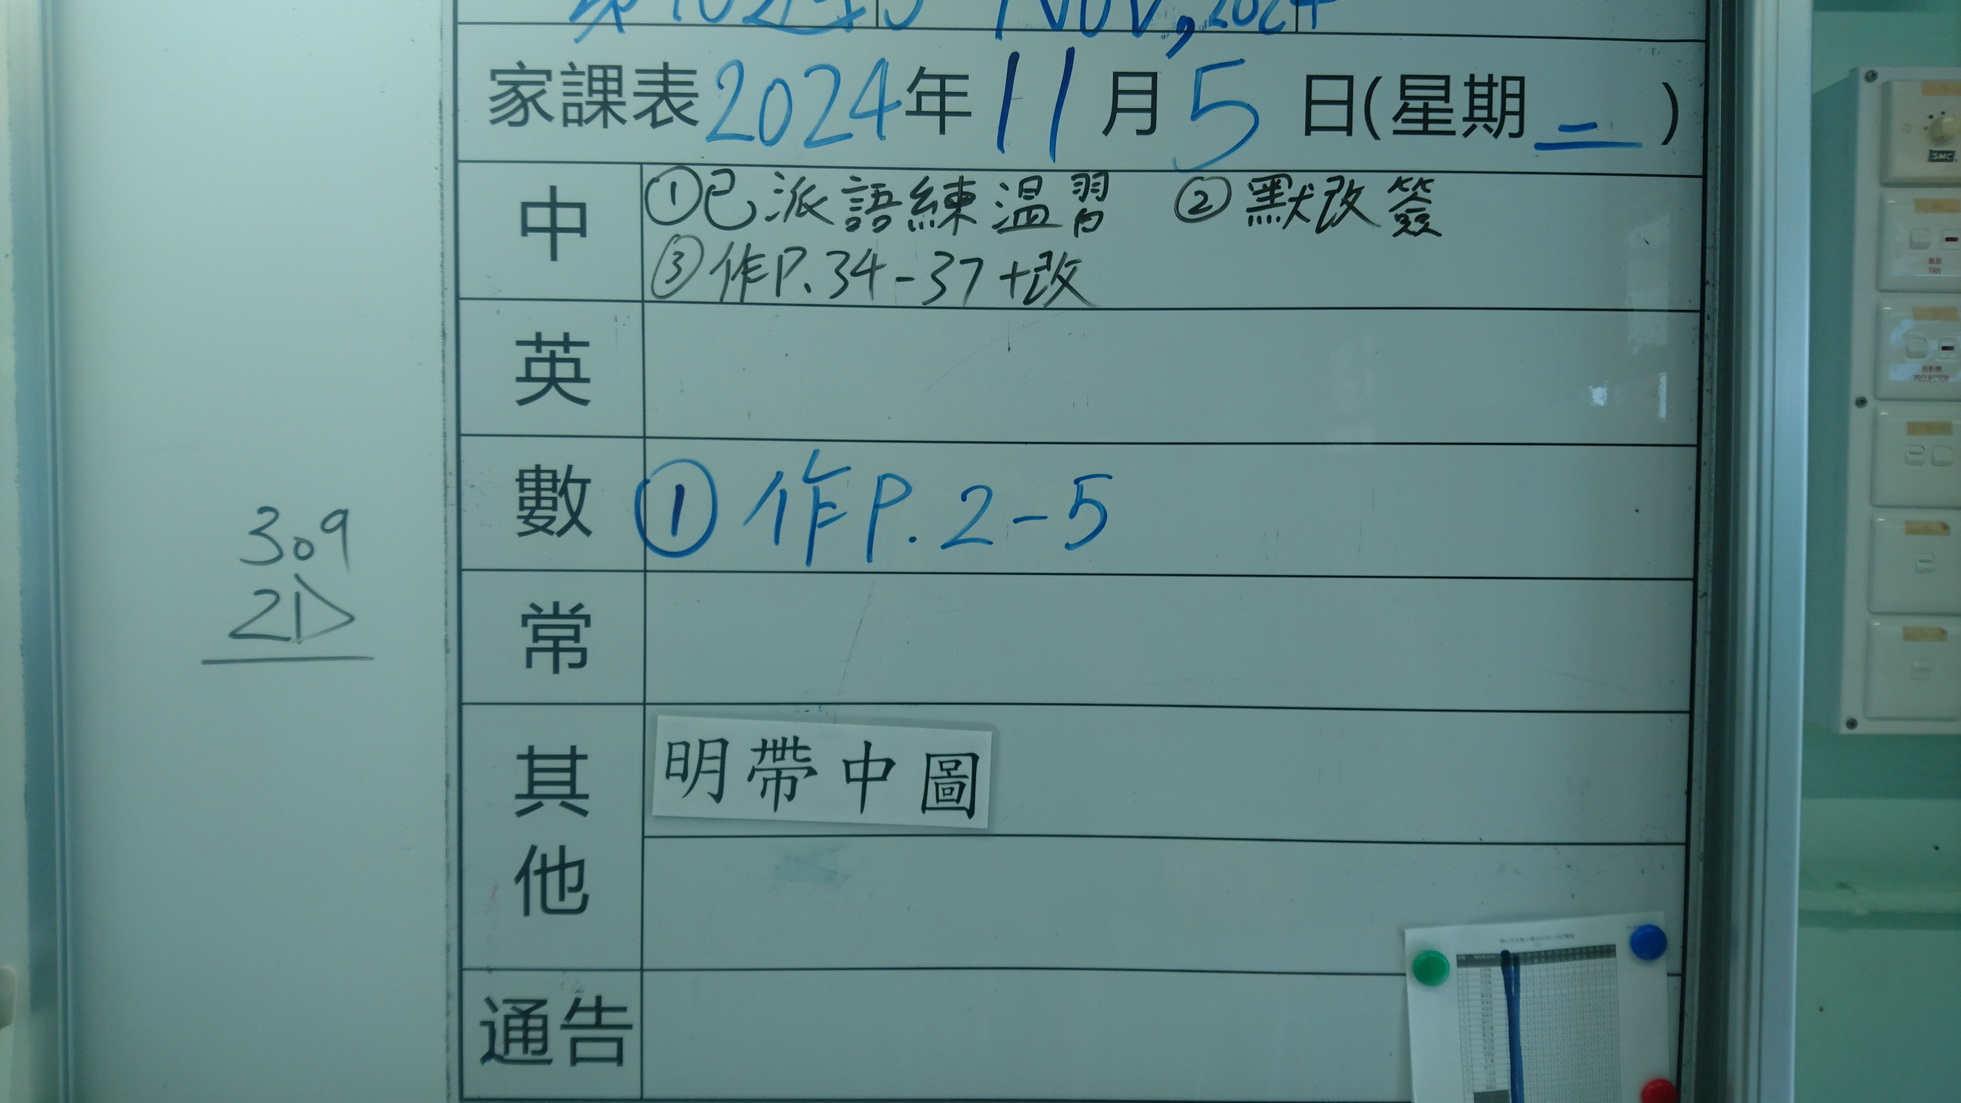 Nov, 2024
家課表2024年11月5日(星期二)
中
①已派語練温習 ②默改簽
③作P.34-37+改
英
數
①作P.2-5
常
其他
明帶中圖
通告
309
SMC
FAN
PROJECTOR